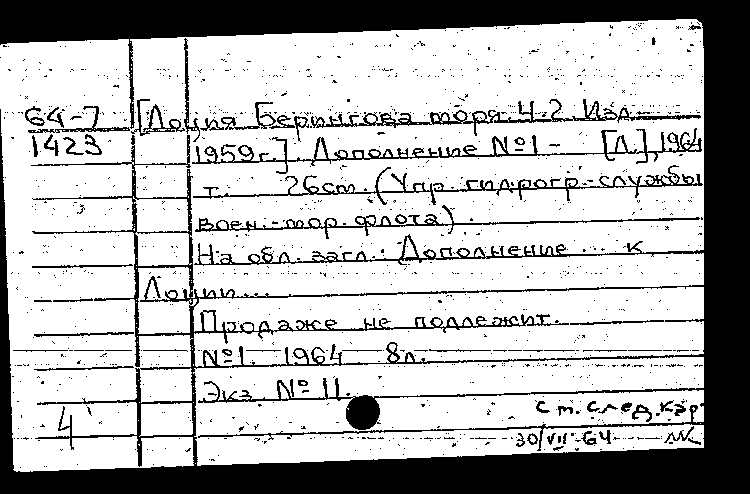 64-7 [Лоция Берингова моря. Ч.2. Изд.
1423 1959г.]. Дополнение №1- [Л.], 1964
т. 26см. (Упр. гидрогр. службы
воен.-мор. флота).
На обл. загл.: Дополнение ... к
Лоции...
Продаже не подлежит.
№1. 1964 8л.
Экз. № 11.
4 См. след. кар
30/VII-64